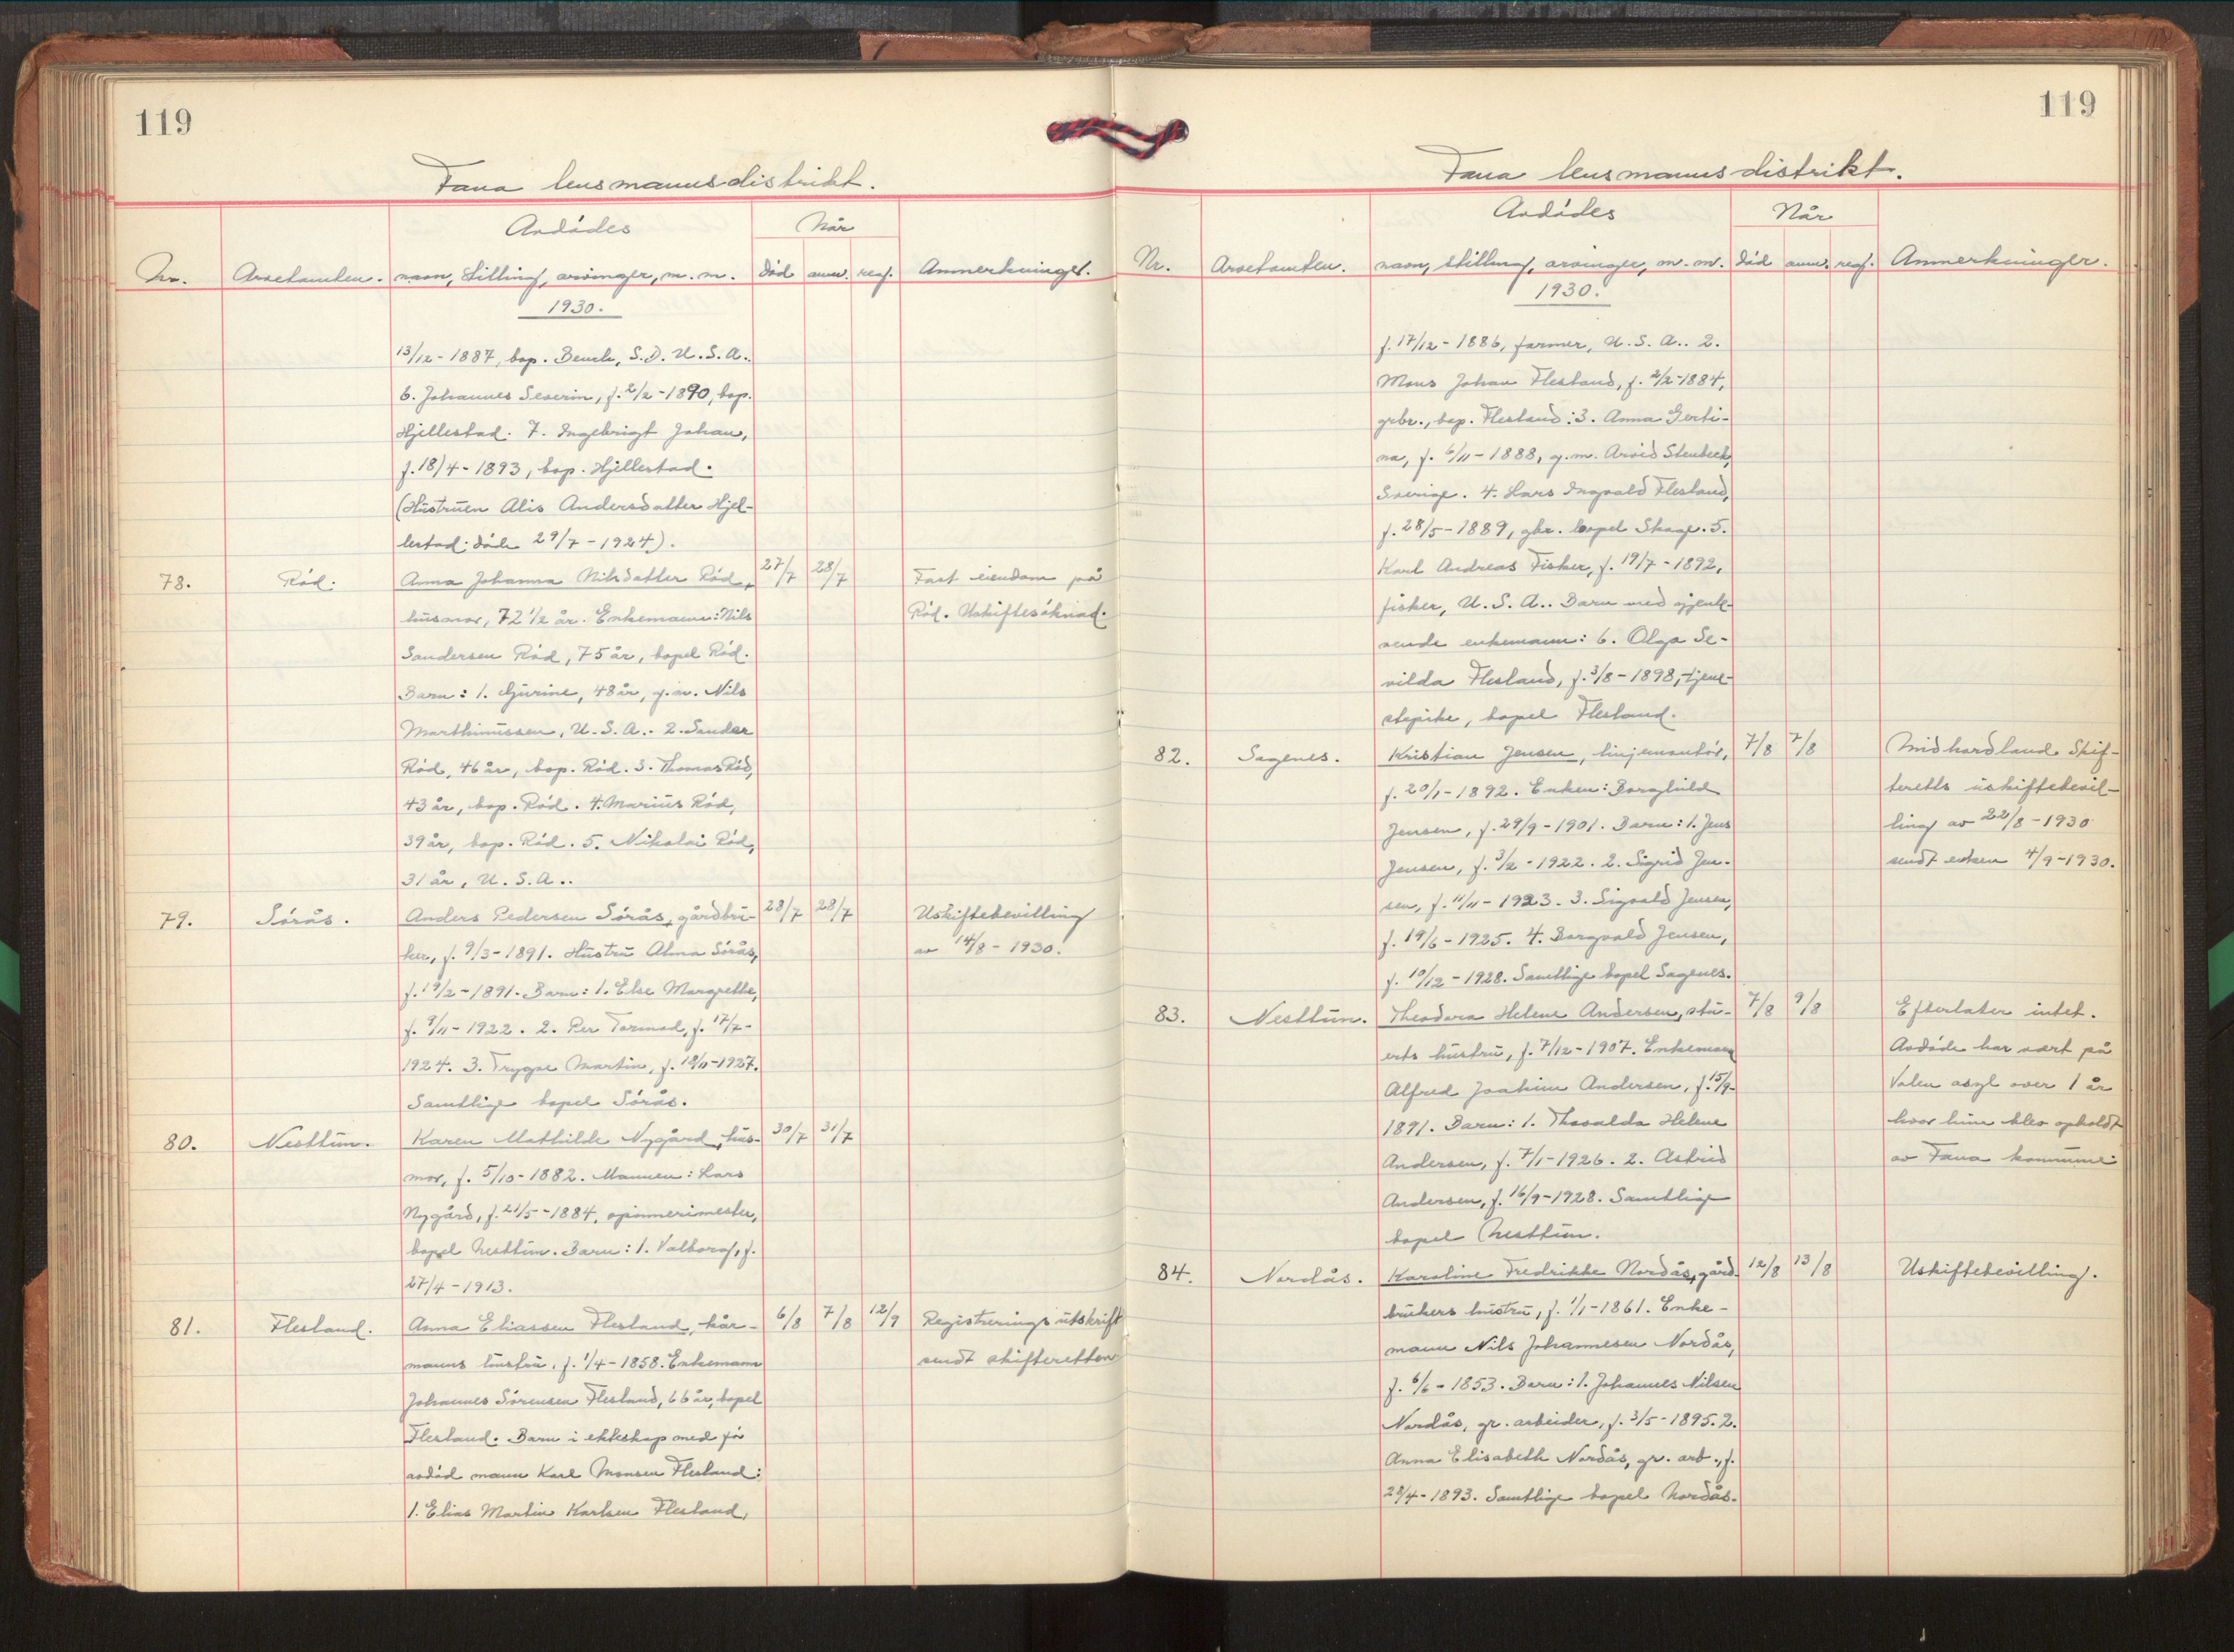 119
Fana lensmannsdistrikt.
Avdödes
Når
Nr.
Arvetomten.
navn, stilling, arvinger, m. m.
död
anm.
reg.
Anmerkninger.
1930.
13/12 - 1887, bop. , S.D. U.S.A..
6. Johannes Severin, f. 2/2 - 1890, bop.
Hjellestad. 7. Ingebrigt Johan,
f. 18/4 - 1893, bop. Hjellestad.
(Hustruen Alis Andersdatter Hjel-
lestad döde 29/7 - 1924).
78.
Röd.
Anna Johanna Nilsdatter Röd,
27/7
28/7
Fast eiendom på
husmor, 72 1/2 år. Enkemann: Nils
Röd. Uskiftesöknad.
Sandersen Röd, 75 år, bopel Röd.
Barn: 1. Gjurine, 48 år, g.m. Nils
Marthinussen, U.S.A.. 2. Sander
Röd, 46 år, bop. Röd. 3. Thomas Röd,
43 år, bop. Röd. 4. Marius Röd,
39 år, bop. Röd. 5. Nikolai Röd,
31 år, U.S.A..
79.
Sörås.
Anders Pedersen Sörås, gårdbru-
28/7
28/7
Uskiftebevilling
ker, f. 9/3 - 1891. Hustru Alma Sörås,
av 14/8 - 1930.
f. 19/2 - 1891. Barn: 1. Else Margrethe,
f. 9/11 - 1922. 2. Per Tormod, f. 17/7 -
1924. 3. Trygve Martin, f. 18/11 - 1927.
Samtlige bopel Sörås.
80.
Nesttun.
Karen Mathilde Nygård, hus-
30/7
31/7
mor, f. 5/10 - 1882. Mannen: Lars
Nygård, f. 21/5 - 1884, spinnerimester,
bopel Nesttun. Barn: 1. Valborg, f.
27/4 - 1913.
81.
Flesland.
Anna Eliassen Flesland, kår-
6/8
7/8
12/9
Registreringsutskrift
manns hustru, f. 1/4 - 1858. Enkemann
sendt skifteretten
Johannes Sörensen Flesland, 66 år, bopel
Flesland. Barn i ekteskap med för
avdöd mann Karl Monsen Flesland:
1. Elias Martin Karlsen Flesland,
119
Fana lensmannsdistrikt.
Avdödes
Når
Nr.
Arvetomten.
navn, stilling, arvinger, m. m.
död
anm.
reg.
Anmerkninger.
1930.
f. 17/12 - 1886, farmer, U.S.A.. 2.
Mons Johan Flesland, f. 2/2 - 1884,
grbr., bop. Flesland. 3. Anna Gerti-
na, f. 6/11 - 1888, g.m. Arvid Stenbeck,
Sverige. 4. Lars Ingvald Flesland,
f. 28/5 - 1889, gbr. bopel Skage. 5.
Karl Andreas Fisker, f. 19/7 - 1892,
fisker, U.S.A.. Barn med gjenle-
vende enkemann: 6. Olga Se-
vilda Flesland, f. 3/8 - 1898, tjene-
stepike, bopel Flesland.
82.
Sagenes.
Kristian Jensen, linjemontör,
7/8
7/8
Midhordland Skif-
f. 20/1 - 1892. Enken: Borghild
teretts uskiftebevil-
Jensen, f. 29/9 - 1901. Barn: 1. Jens
ling av 22/8 - 1930
Jensen, f. 3/2 - 1922. 2. Sigrid Jen-
sendt enken 4/9 - 1930.
sen, f. 11/11 - 1923. 3. Sigvald Jensen,
f. 19/6 - 1925. 4. Borgvald Jensen,
f. 10/12 - 1928. Samtlige bopel Sagenes.
83.
Nesttun.
Theodora Helene Andersen, stu-
7/8
9/8
Efterlater intet.
erts hustru, f. 7/12 - 1907. Enkemann
Avdöde har vært på
Alfred Joakim Andersen, f. 15/9 -
Valen asyl over 1 år
1891. Barn: 1. Thovalda Helene
hvor hun blev opholdt
Andersen, f. 7/1 - 1926. 2. Astrid
av Fana kommune
Andersen, f. 16/9 - 1928. Samtlige
bopel Nesttun.
84.
Nordås.
Karoline Fredrikke Nordås, gård-
12/8
13/8
Uskiftebevilling.
brukers hustru, f. 1/1 - 1861. Enke-
mann Nils Johannesen Nordås,
f. 6/6 - 1853. Barn: 1. Johannes Nilsen
Nordås, gr. arbeider, f. 3/5 - 1895. 2.
Anna Elisabeth Nordås, gr. arb., f.
28/4 - 1893. Samtlige bopel Nordås.